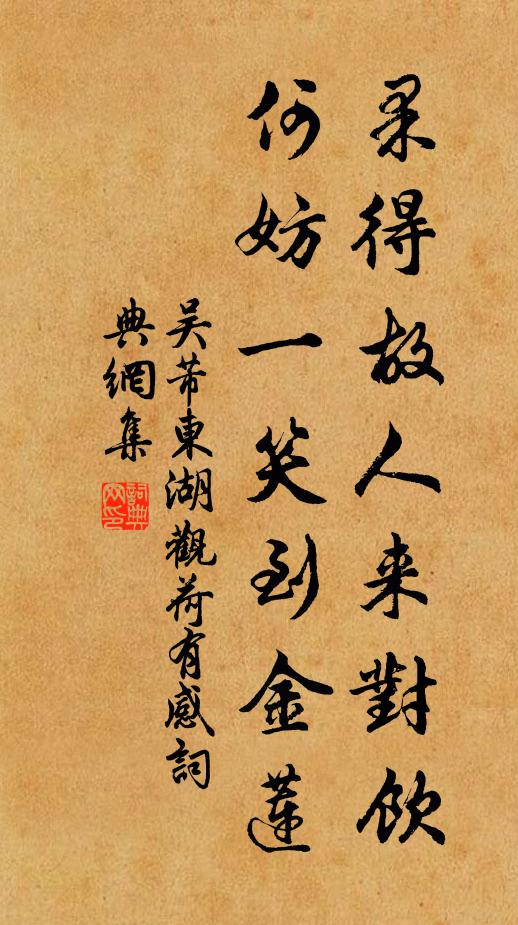 果得故人来對飲
何妨一笑到金蓮
吴芾東湖觀荷有感詞
典網集
詞典
网印